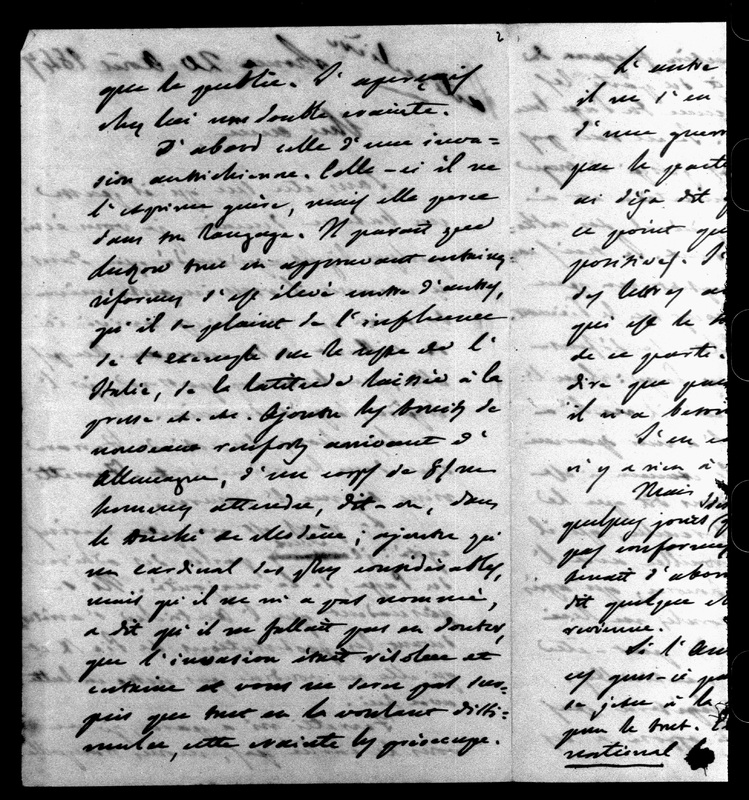 2
que le public. J'aperçois
chez lui une double crainte.
D'abord celle d'une inva=
sion autrichienne. Celle-ci il ne
l'exprime guère, mais elle perce
dans son langage. Il paraît que
tout en approuvant certaines
réformes s'est élevé contre d'autres,
qu'il se plaint de l'influence
de l'exemple sur le reste de l'
Italie, de la latitude laissée à la
presse etc. etc. Ajoutez les bruits de
nouveaux renforts arrivant d'
Allemagne, d'un corps de 8/m
hommes attendu, dit-on, dans
le Duché de Modène; ajoutez qu'
un cardinal des plus considérables,
mais qu'il ne m'a pas nommé,
a dit qu'il ne fallait pas en douter,
que l'invasion était résolue et
certaine et vous ne serez pas sur=
pris que tout en le voulant dissi=
muler, cette crainte les préoccupe.
L'autre
il ne s'en
d'une guerre
que le parti
ai déjà dit
ce point
positives.
des lettres
qui est le
de ce parti.
dire que
il n'a besoin
J'en
n'y a rien à
Mais
quelques jours
pas
tenait d'abord
dit quelque
revienne.
Si l'
ces
se jeter à la
pour le tout.
national